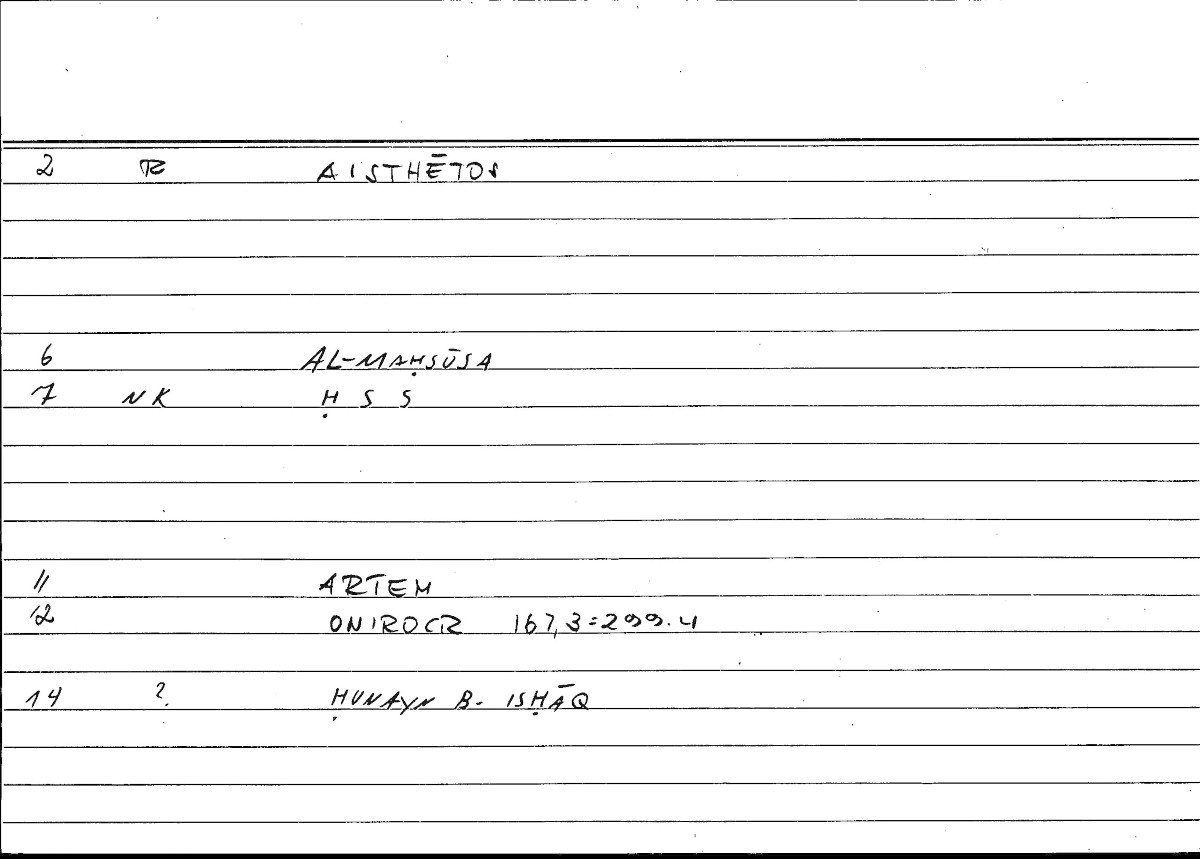 2 R AISTHĒTOS
6 AL-MAḤSŪSA
7 NK Ḥ S S
11 ARTEM
12 ONIROCR 167,3=299.4
14 ? ḤUNAYN B. ISḤĀQ